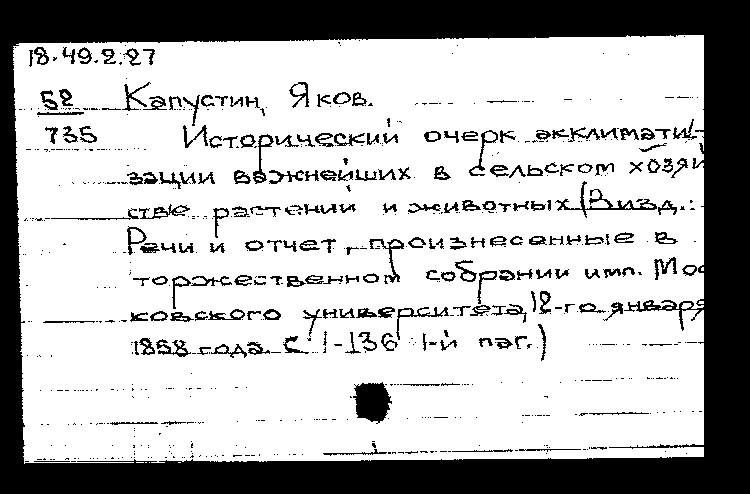 18.49.2.27
52 Капустин, Яков.
735 Исторический очерк акклимати-
зации важнейших в сельском хозяй
стве растений и животных (В изд.:
Речи и отчет, произнесенные в
торжественном собрании имп. Мос
ковского университета, 12-го января
1858 года. С 1-136 1-й паг.)